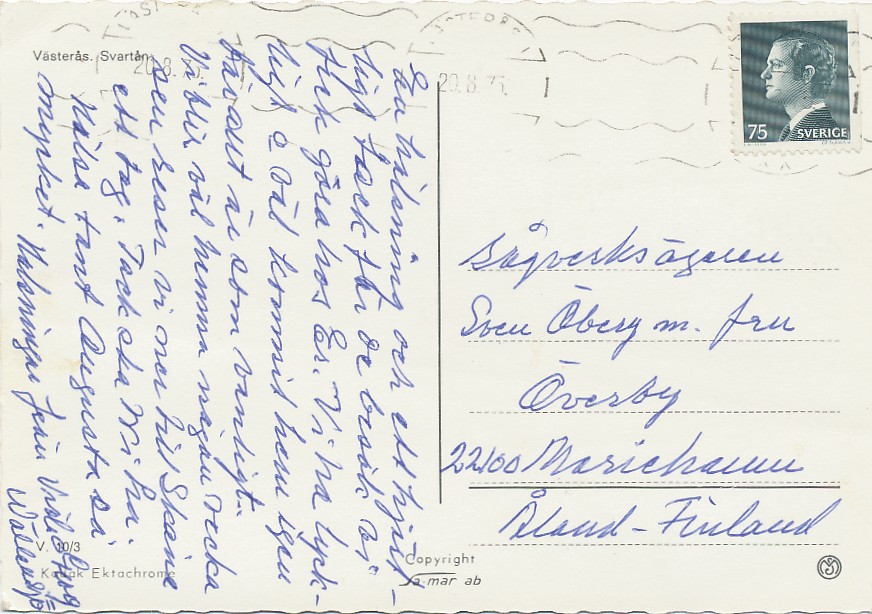 Västerås. Svartån
VÄSTERÅS 1
20.8.75.
20.8.75.
75
SVERIGE
En hälsning och ett hjärt-
ligt tack för de besök vi
fick göra hos Er. Vi ha lyck-
ligt o väl kommit hem igen
Allt är som vanligt.
Vi blir väl hemma någon vecka
sen reser vi ner till Skåne
ett tag. Tack ska Ni ha.
Hälsa tant Augusta så
mycket. Hälsningar från
V. 10/3
Kodak Ektachrome
Copyright
Ja-mar ab
Sågverksägaren
Sven Öberg m. fru
Överby
22100 Mariehamn
Åland - Finland